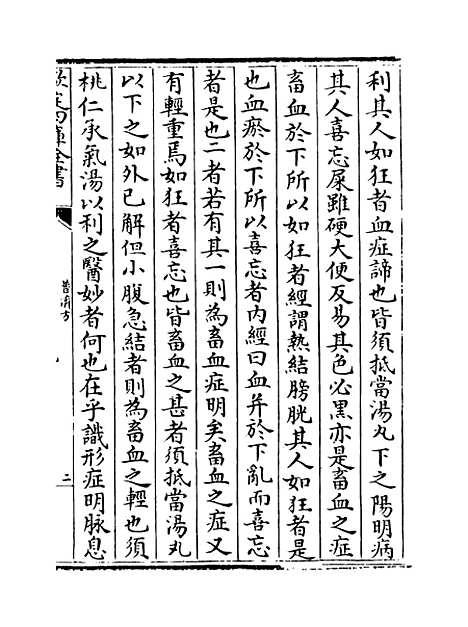 利其人如狂者血症諦也皆須抵當湯丸下之陽明病
其人喜忘屎雖硬大便反易其色必黑亦是畜血之症
畜血於下所以如狂者經謂熱結膀胱其人如狂者是
也血瘀於下所以喜忘者内經曰血并於下亂而喜忘
者是也二者若有其一則為畜血症明矣畜血之症又
有輕重焉如狂者喜忘也皆畜血之甚者須抵當湯丸
以下之如外已解但小腹急結者則為畜血之輕也須
桃仁承氣湯以利之醫妙者何也在乎識形症明脉息
欽定四庫全書
普濟方
二